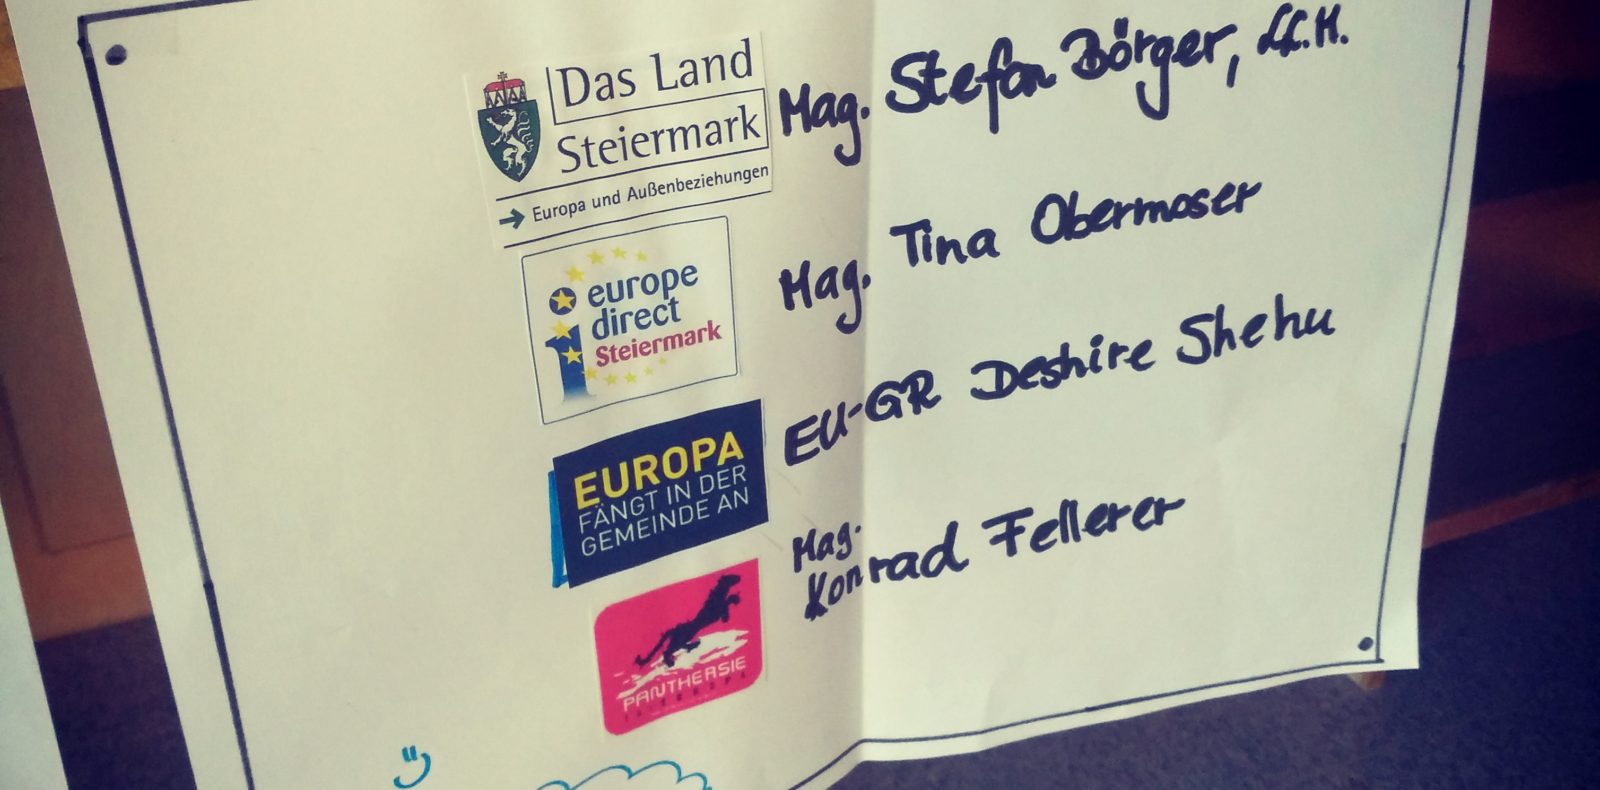 Das Land
Steiermark
→ Europa und Außenbeziehungen
Mag. Stefan Börger, LL.M.
europe
direct
Steiermark
Mag. Tina Obermoser
EUROPA
FÄNGT IN DER
GEMEINDE AN
EU-GR Deshire Shehu
PANTHERSIE
Mag.
Konrad Fellerer